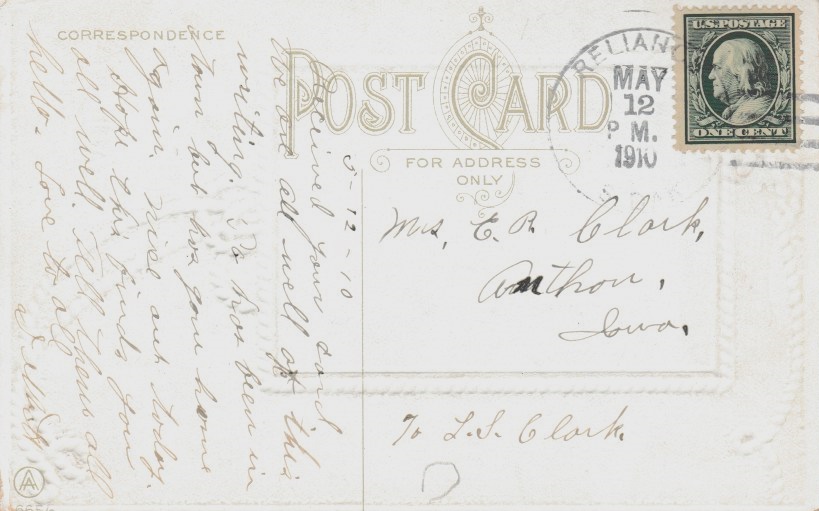 CORRESPONDENCE
POST CARD
FOR ADDRESS
ONLY
U.S. POSTAGE
ONE CENT
RELIANC
MAY
12
P M.
1910
5-12-10
Received your card
We are all well of this
writing. Pa has been in
town but has gone home
again. nice out today.
Hope this finds you
all well. Tell them all
hello. Love to all
Mrs, E. R. Clark,
Anthon,
Iowa.
To L.S. Clark.
AA